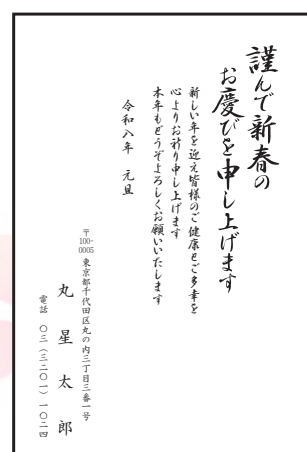 謹んで新春の
お慶びを申し上げます
新しい年を迎え皆様のご健康とご多幸を
心よりお祈り申し上げます
本年もどうぞよろしくお願いいたします
令和八年　元旦
〒100-0005 東京都千代田区丸の内三丁目三番一号
丸星太郎
電話　〇三（三二〇一）一〇二四